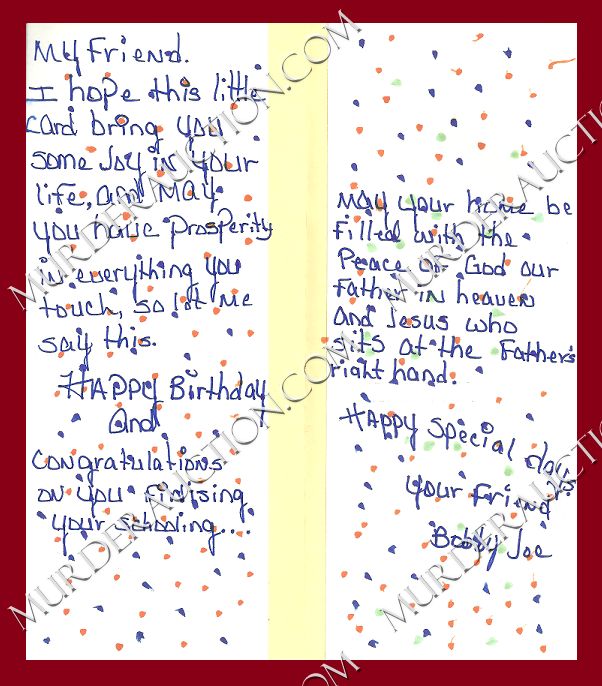 My Friend.
I hope this little
card bring you
some Joy in your
life, and May
you have prosperity
in everything you
touch, so let me
say this.
HAPPY Birthday
And
Congratulations
on you finising
your schooling...
May your home be
filled with the
Peace of God our
Father in heaven
And Jesus who
sits at the Father's
right hand.
HAPPY Special days
your Friend
Bobby Joe
MURDERAUCTION.COM
MURDERAUCTION.COM
MURDERAUCTION.COM
MURDERAUCTION.COM